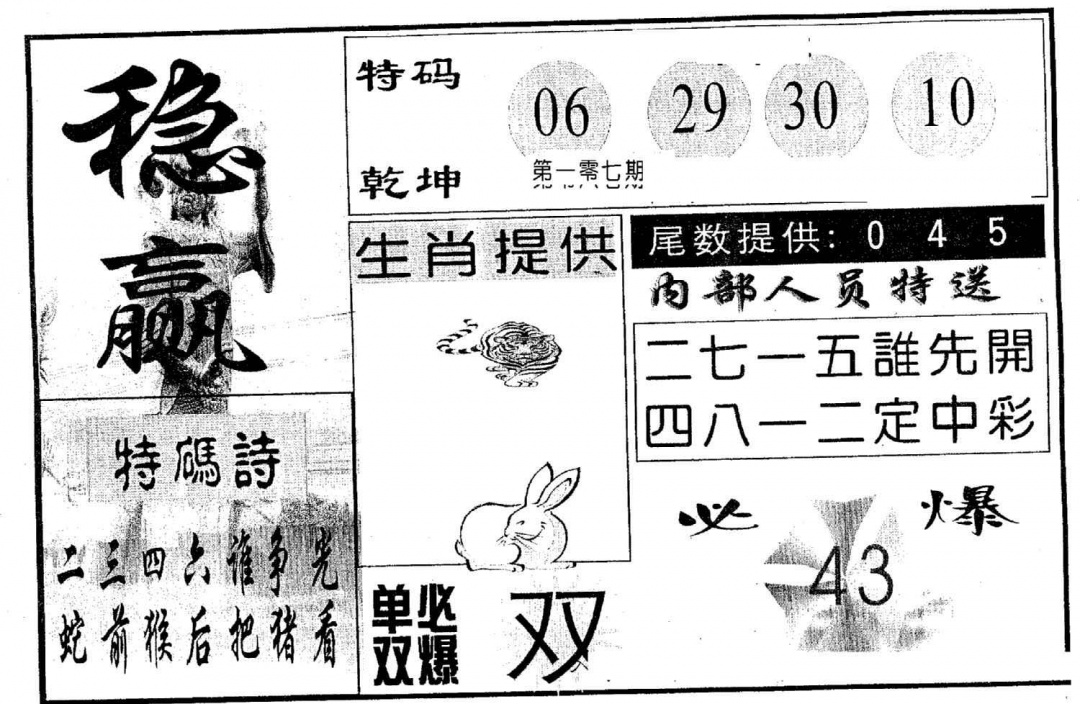 稳赢
特码 06 29 30 10
乾坤 第一零七期
生肖提供
尾数提供: 0 4 5
内部人员特送
二七一五誰先開
四八一二定中彩
特碼詩
二三四六谁争光
蛇前猴后把猪看
必爆
43
单双必爆
双